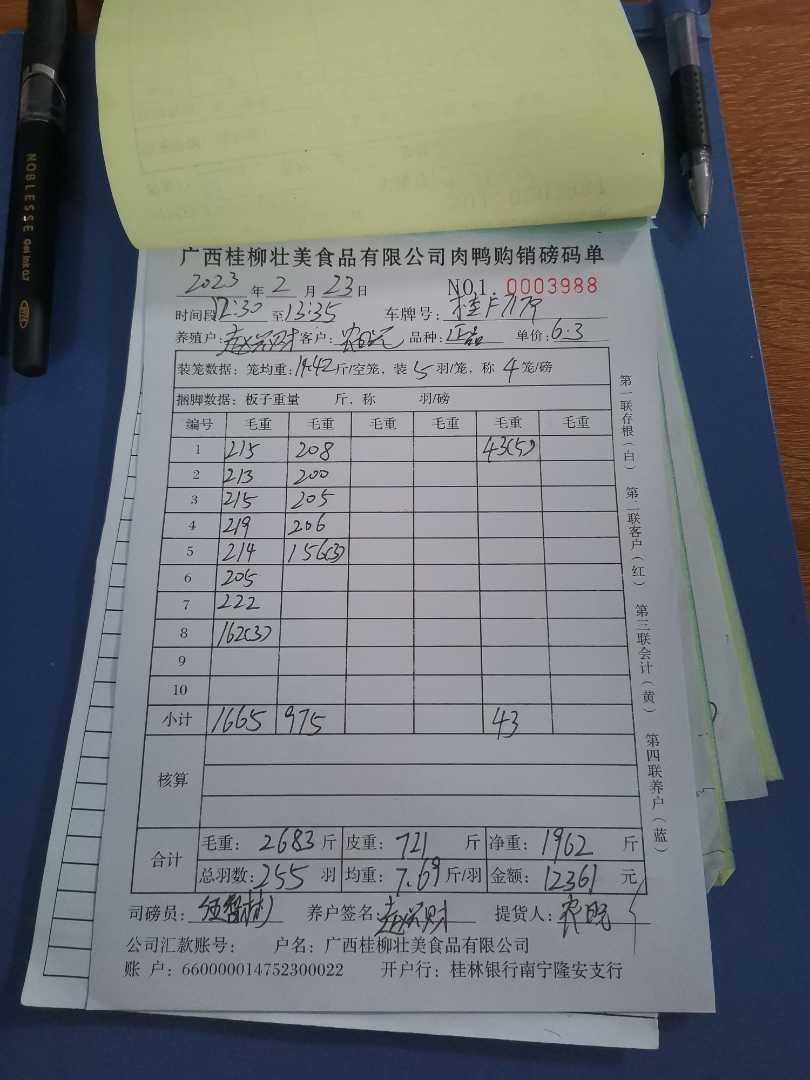 NOBLESSE
广西桂柳壮美食品有限公司肉鸭购销磅码单
2023年2月23日 NO1.0003988
时间段12:30至13:35 车牌号:桂F7179
养殖户: 客户: 品种:正品 单价:6.3
装笼数据:笼均重:14.42斤/空笼,装5羽/笼,称4笼/磅
捆脚数据:板子重量 斤,称 羽/磅
编号 毛重 毛重 毛重 毛重 毛重 毛重
1 215 208 43(5)
2 213 200
3 215 205
4 219 206
5 214 156(3)
6 205
7 222
8 162(3)
9
10
小计 1665 975 43
核算
合计 毛重:2683斤 皮重:721斤 净重:1962斤
总羽数:255羽 均重:7.69斤/羽 金额:12361元
司磅员: 养户签名: 提货人:
公司汇款账号: 户名:广西桂柳壮美食品有限公司
账户:660000014752300022 开户行:桂林银行南宁隆安支行
第一联存根(白) 第二联客户(红) 第三联会计(黄) 第四联养户(蓝)